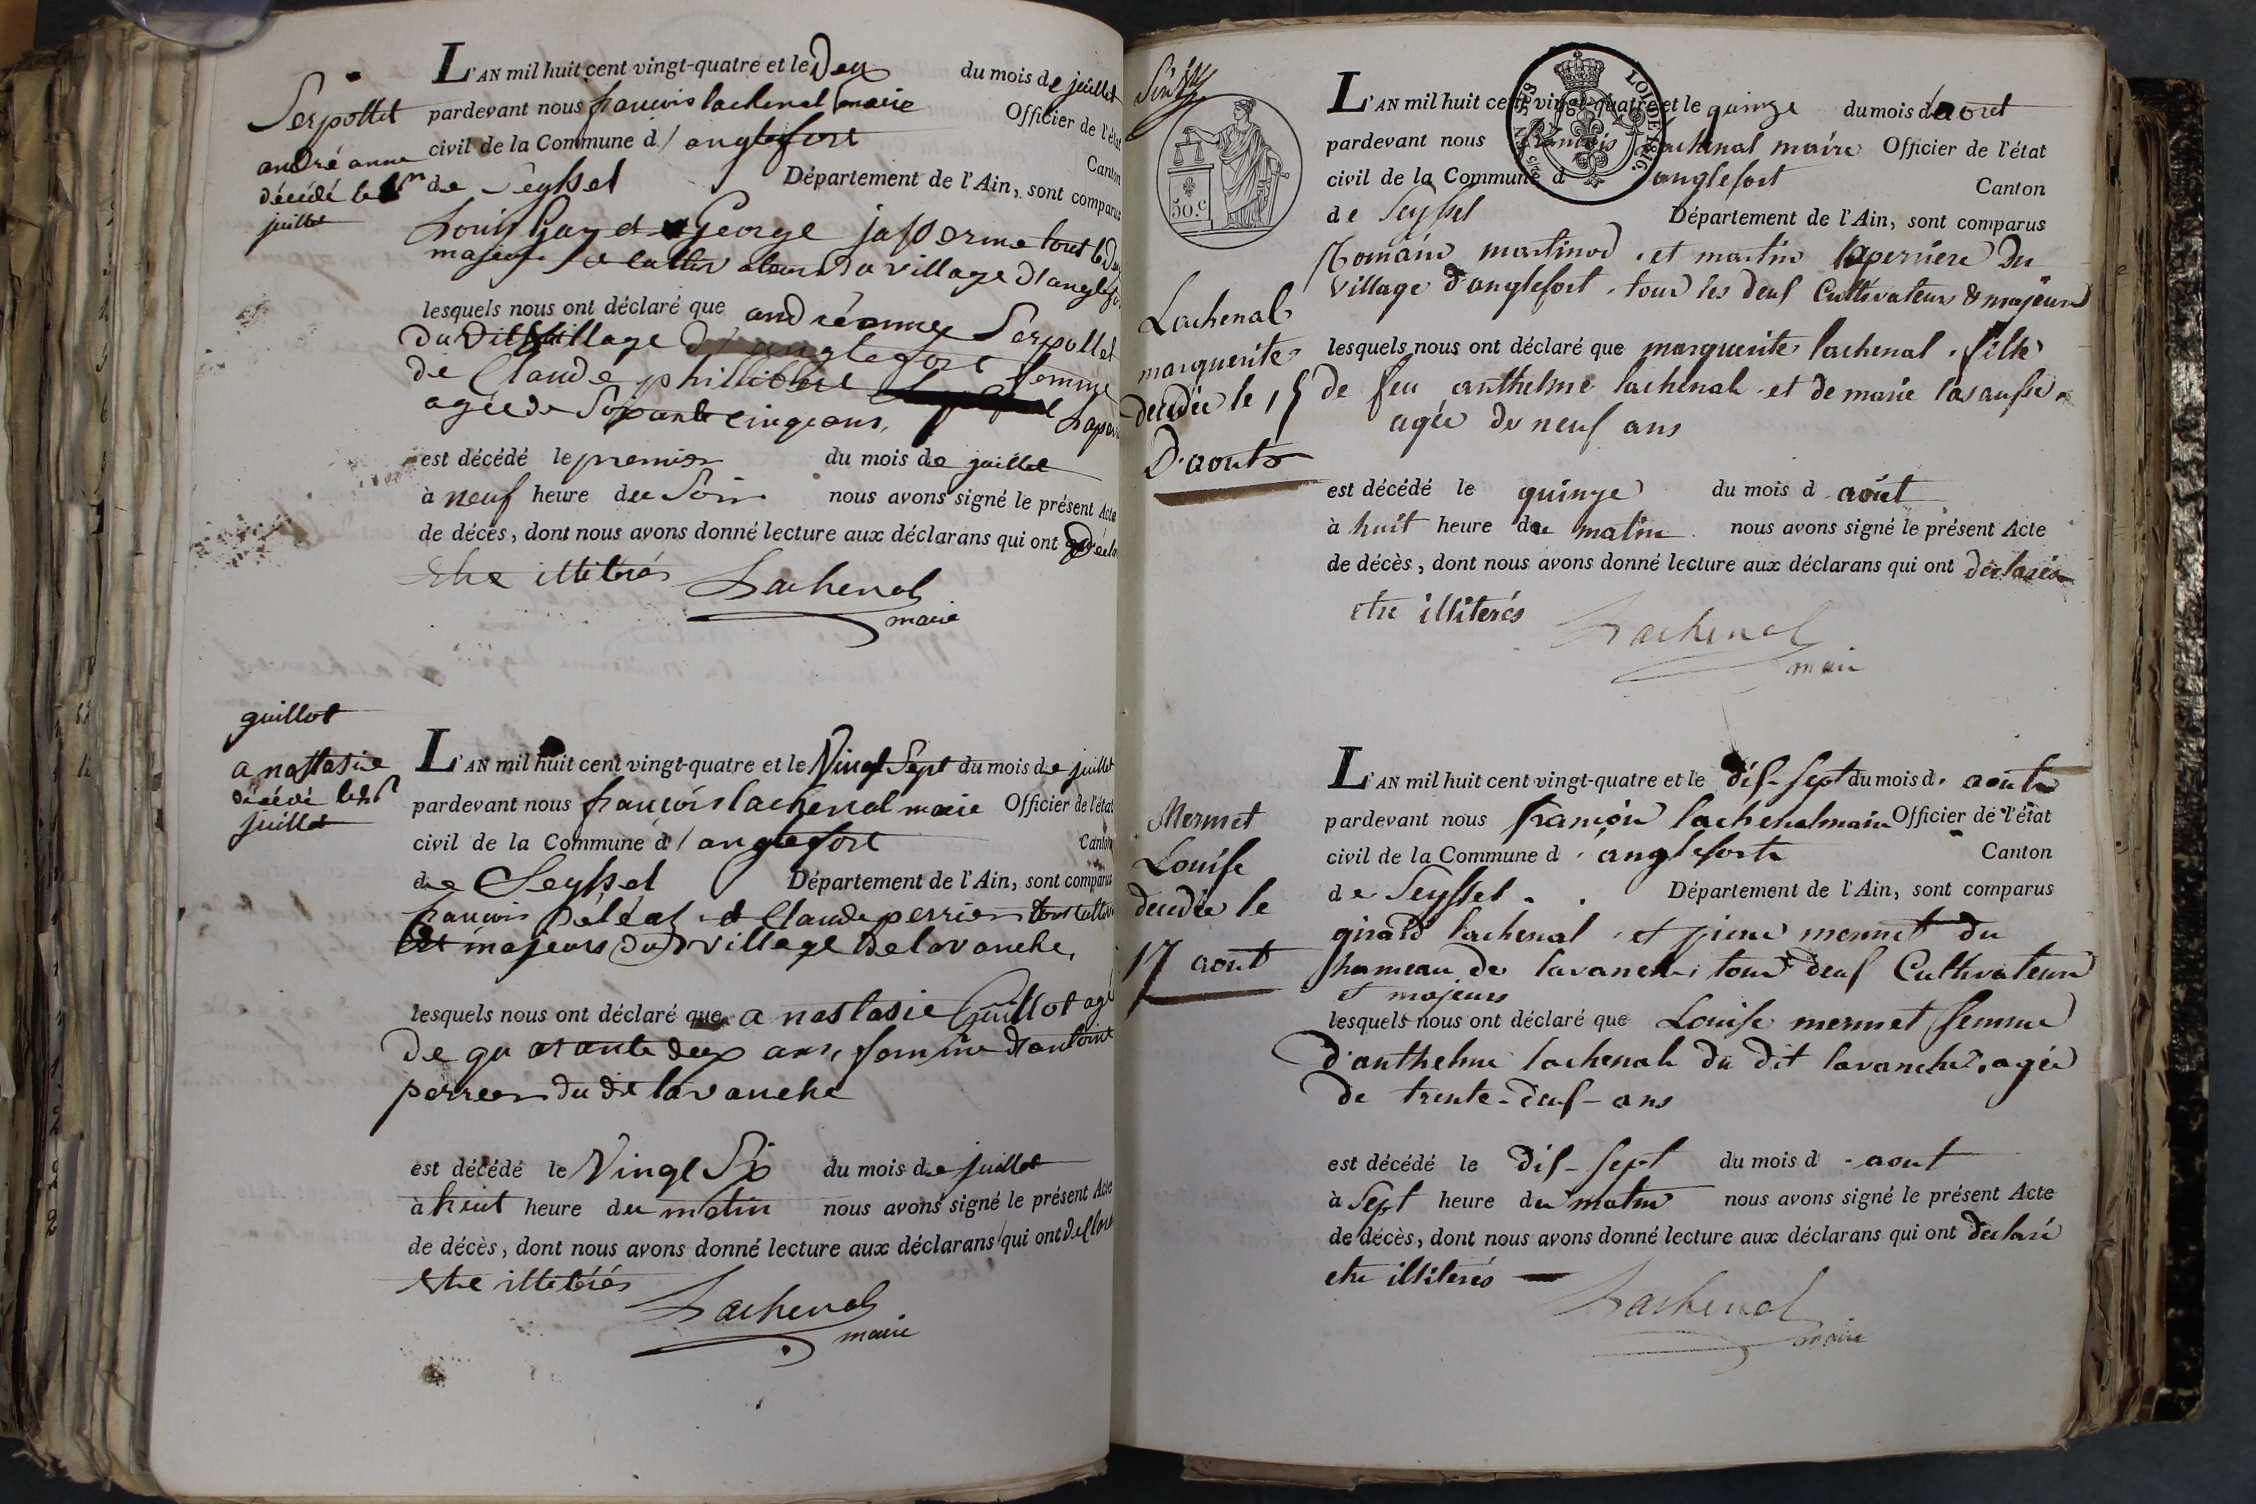 Serpollet
andré anne
décédé le 1er
juillet
L'AN mil huit cent vingt-quatre et le deux du mois de juillet
pardevant nous francois lachenal maire Officier de l'état
civil de la Commune d'anglefort Canton
de Seyssel Département de l'Ain, sont comparus
Louis Gay et George jasserme tout les deux
majeurs et cultivateurs du village d'anglefort
lesquels nous ont déclaré que andréanne Serpollet
du dit village d'anglefort femme
de Claude philibert
agée de Soixante cinq ans,
est décédé le premier du mois de juillet
à neuf heure du Soir nous avons signé le présent Acte
de décès, dont nous avons donné lecture aux déclarans qui ont déclaré
etre illiterés
Lachenal
maire
guillot
anastasie
décédé le 26
juillet
L'AN mil huit cent vingt-quatre et le Vingt Sept du mois de juillet
pardevant nous francois lachenal maire Officier de l'état
civil de la Commune d'anglefort Canton
de Seyssel Département de l'Ain, sont comparus
francois Déléaz et Claude perrier tous cultivateurs
et majeurs du village De lavanche,
lesquels nous ont déclaré que anastasie Guillot agée
De quarante deux ans, femme d'antoine
perrier du dit lavanche
est décédé le Vingt Six du mois de juillet
à huit heure du matin nous avons signé le présent Acte
de décès, dont nous avons donné lecture aux déclarans qui ont declaré
etre illiterés
Lachenal
maire
50.c
LOI DE 1816
Lachenal
marguerite
decedée le 15
D'aout
L'AN mil huit cent vingt-quatre et le quinze du mois d'aout
pardevant nous francois Lachenal maire Officier de l'état
civil de la Commune d'anglefort Canton
de Seyssel Département de l'Ain, sont comparus
Romain martinod et martin laperriere Du
village d'anglefort tous les deux Cultivateurs & majeurs
lesquels nous ont déclaré que marguerite lachenal fille
de feu anthelme lachenal et de marie lasausse
agée de neuf ans
est décédé le quinze du mois d août
à huit heure du matin nous avons signé le présent Acte
de décès, dont nous avons donné lecture aux déclarans qui ont déclarés
etre illiterés
Lachenal
maire
Mermet
Louise
decedée le
17 aout
L'AN mil huit cent vingt-quatre et le dix-sept du mois d'aout
pardevant nous francois lachenal maire Officier de l'état
civil de la Commune d'anglefort Canton
de Seyssel Département de l'Ain, sont comparus
girard lachenal et pierre mermet du
hameau de lavanche tous deux Cultivateurs
et majeurs
lesquels nous ont déclaré que Louise mermet femme
d'anthelme lachenal du dit lavanche, agée
de trente-deux-ans
est décédé le dix-sept du mois d'aout
à Sept heure du matin nous avons signé le présent Acte
de décès, dont nous avons donné lecture aux déclarans qui ont declaré
etre illiterés
Lachenal
maire